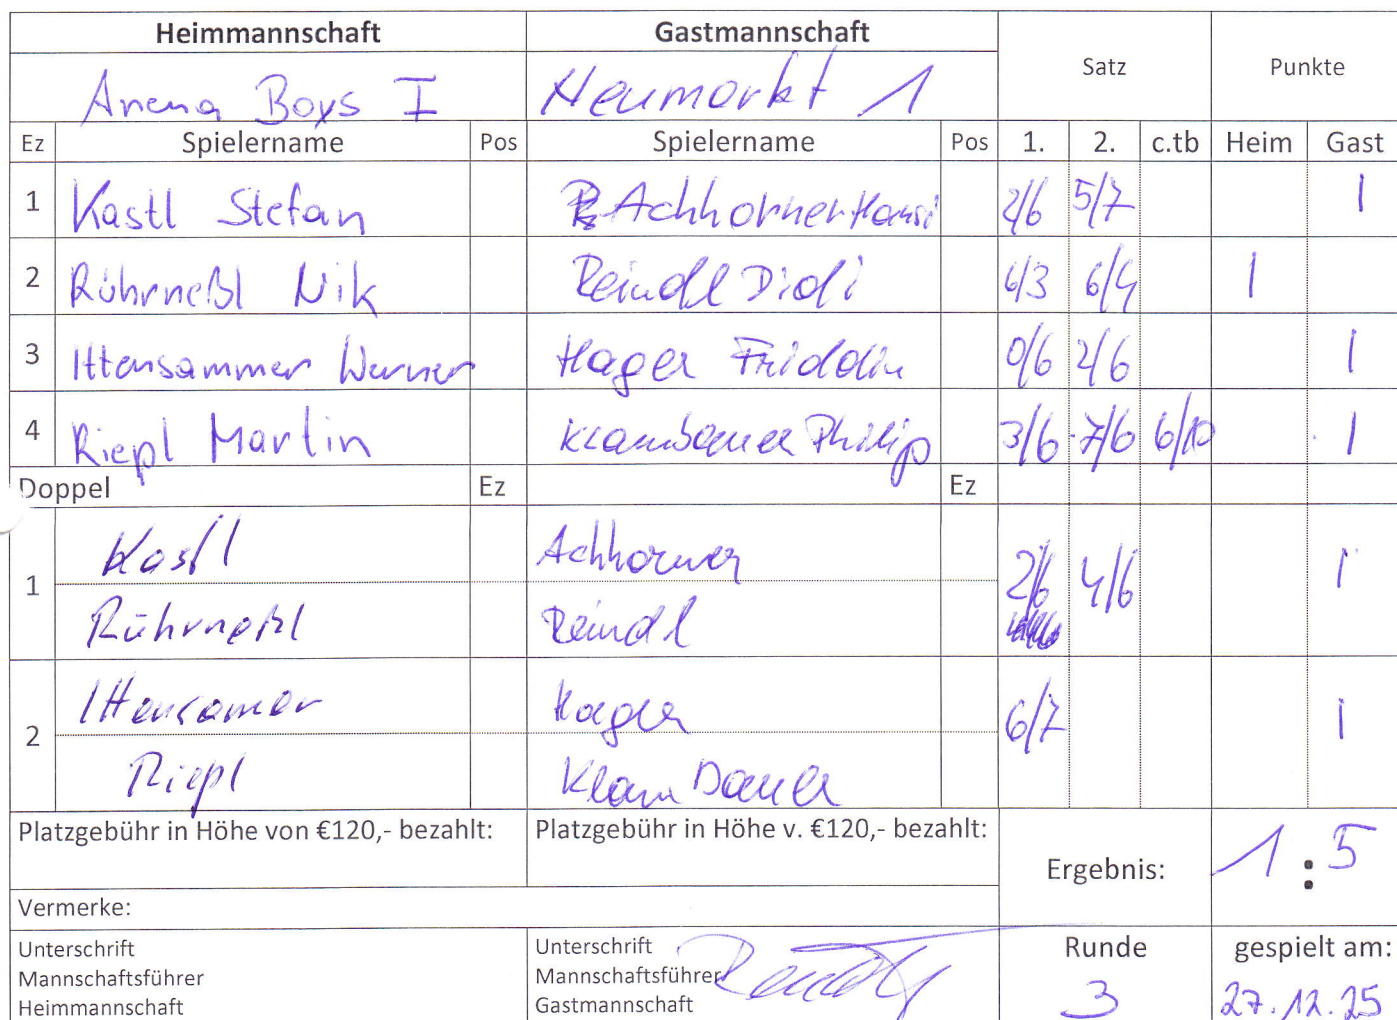 Heimmannschaft Gastmannschaft Satz Punkte
Arena Boys I Neumarkt 1
Ez Spielername Pos Spielername Pos 1. 2. c.tb Heim Gast
1 Kastl Stefan Achhorner Hansi 2/6 5/7 1
2 Rührneßl Nik Reindl Didi 6/3 6/4 1
3 Ittensammer Werner Hager Fridolin 0/6 2/6 1
4 Riepl Martin Klambauer Philip 3/6 7/6 6/10 1
Doppel Ez Ez
Kastl Achhorner
1 2/6 4/6 1
Rührneßl Reindl
Ittensamer Hager
2 6/7 1
Riepl Klambauer
Platzgebühr in Höhe von €120,- bezahlt: Platzgebühr in Höhe v. €120,- bezahlt:
Ergebnis: 1 : 5
Vermerke:
Unterschrift Unterschrift Runde gespielt am:
Mannschaftsführer Mannschaftsführer
Heimmannschaft Gastmannschaft 3 27.12.25